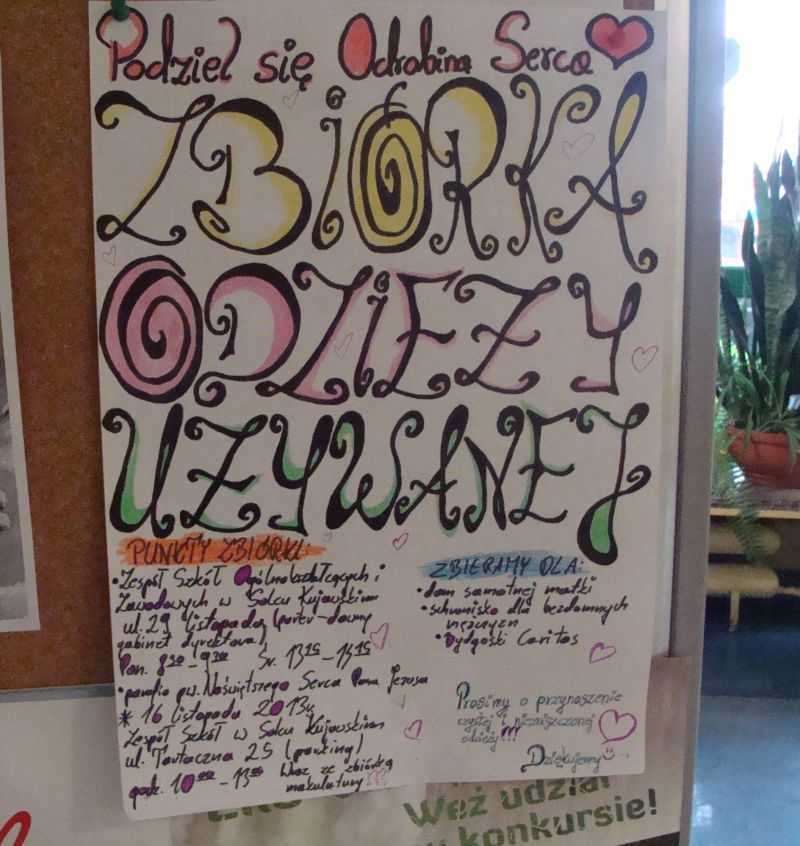 Podziel się Odrobiną Serca
ZBIÓRKA
ODZIEŻY
UŻYWANEJ
PUNKTY ZBIÓRKI:
• Zespół Szkół Ogólnokształcących i
Zawodowych w Solcu Kujawskim
ul. 29 listopada (parter - dawny
gabinet dyrektora)
Pon. 8 30 - 9 30 Śr. 13 15 - 15 15
• parafia pw. Najświętszego Serca Pana Jezusa
* 16 listopada 2013r.
Zespół Szkół w Solcu Kujawskim
ul. Tartaczna 25 (parking)
godz. 10 00 - 13 00 Wraz ze zbiórką
makulatury!!!
ZBIERAMY DLA:
• dom samotnej matki
• schronisko dla bezdomnych
mężczyzn
• Bydgoski Caritas
Prosimy o przynoszenie
czystej i niezniszczonej
odzieży!!!
Dziękujemy
Weź udział
w konkursie!